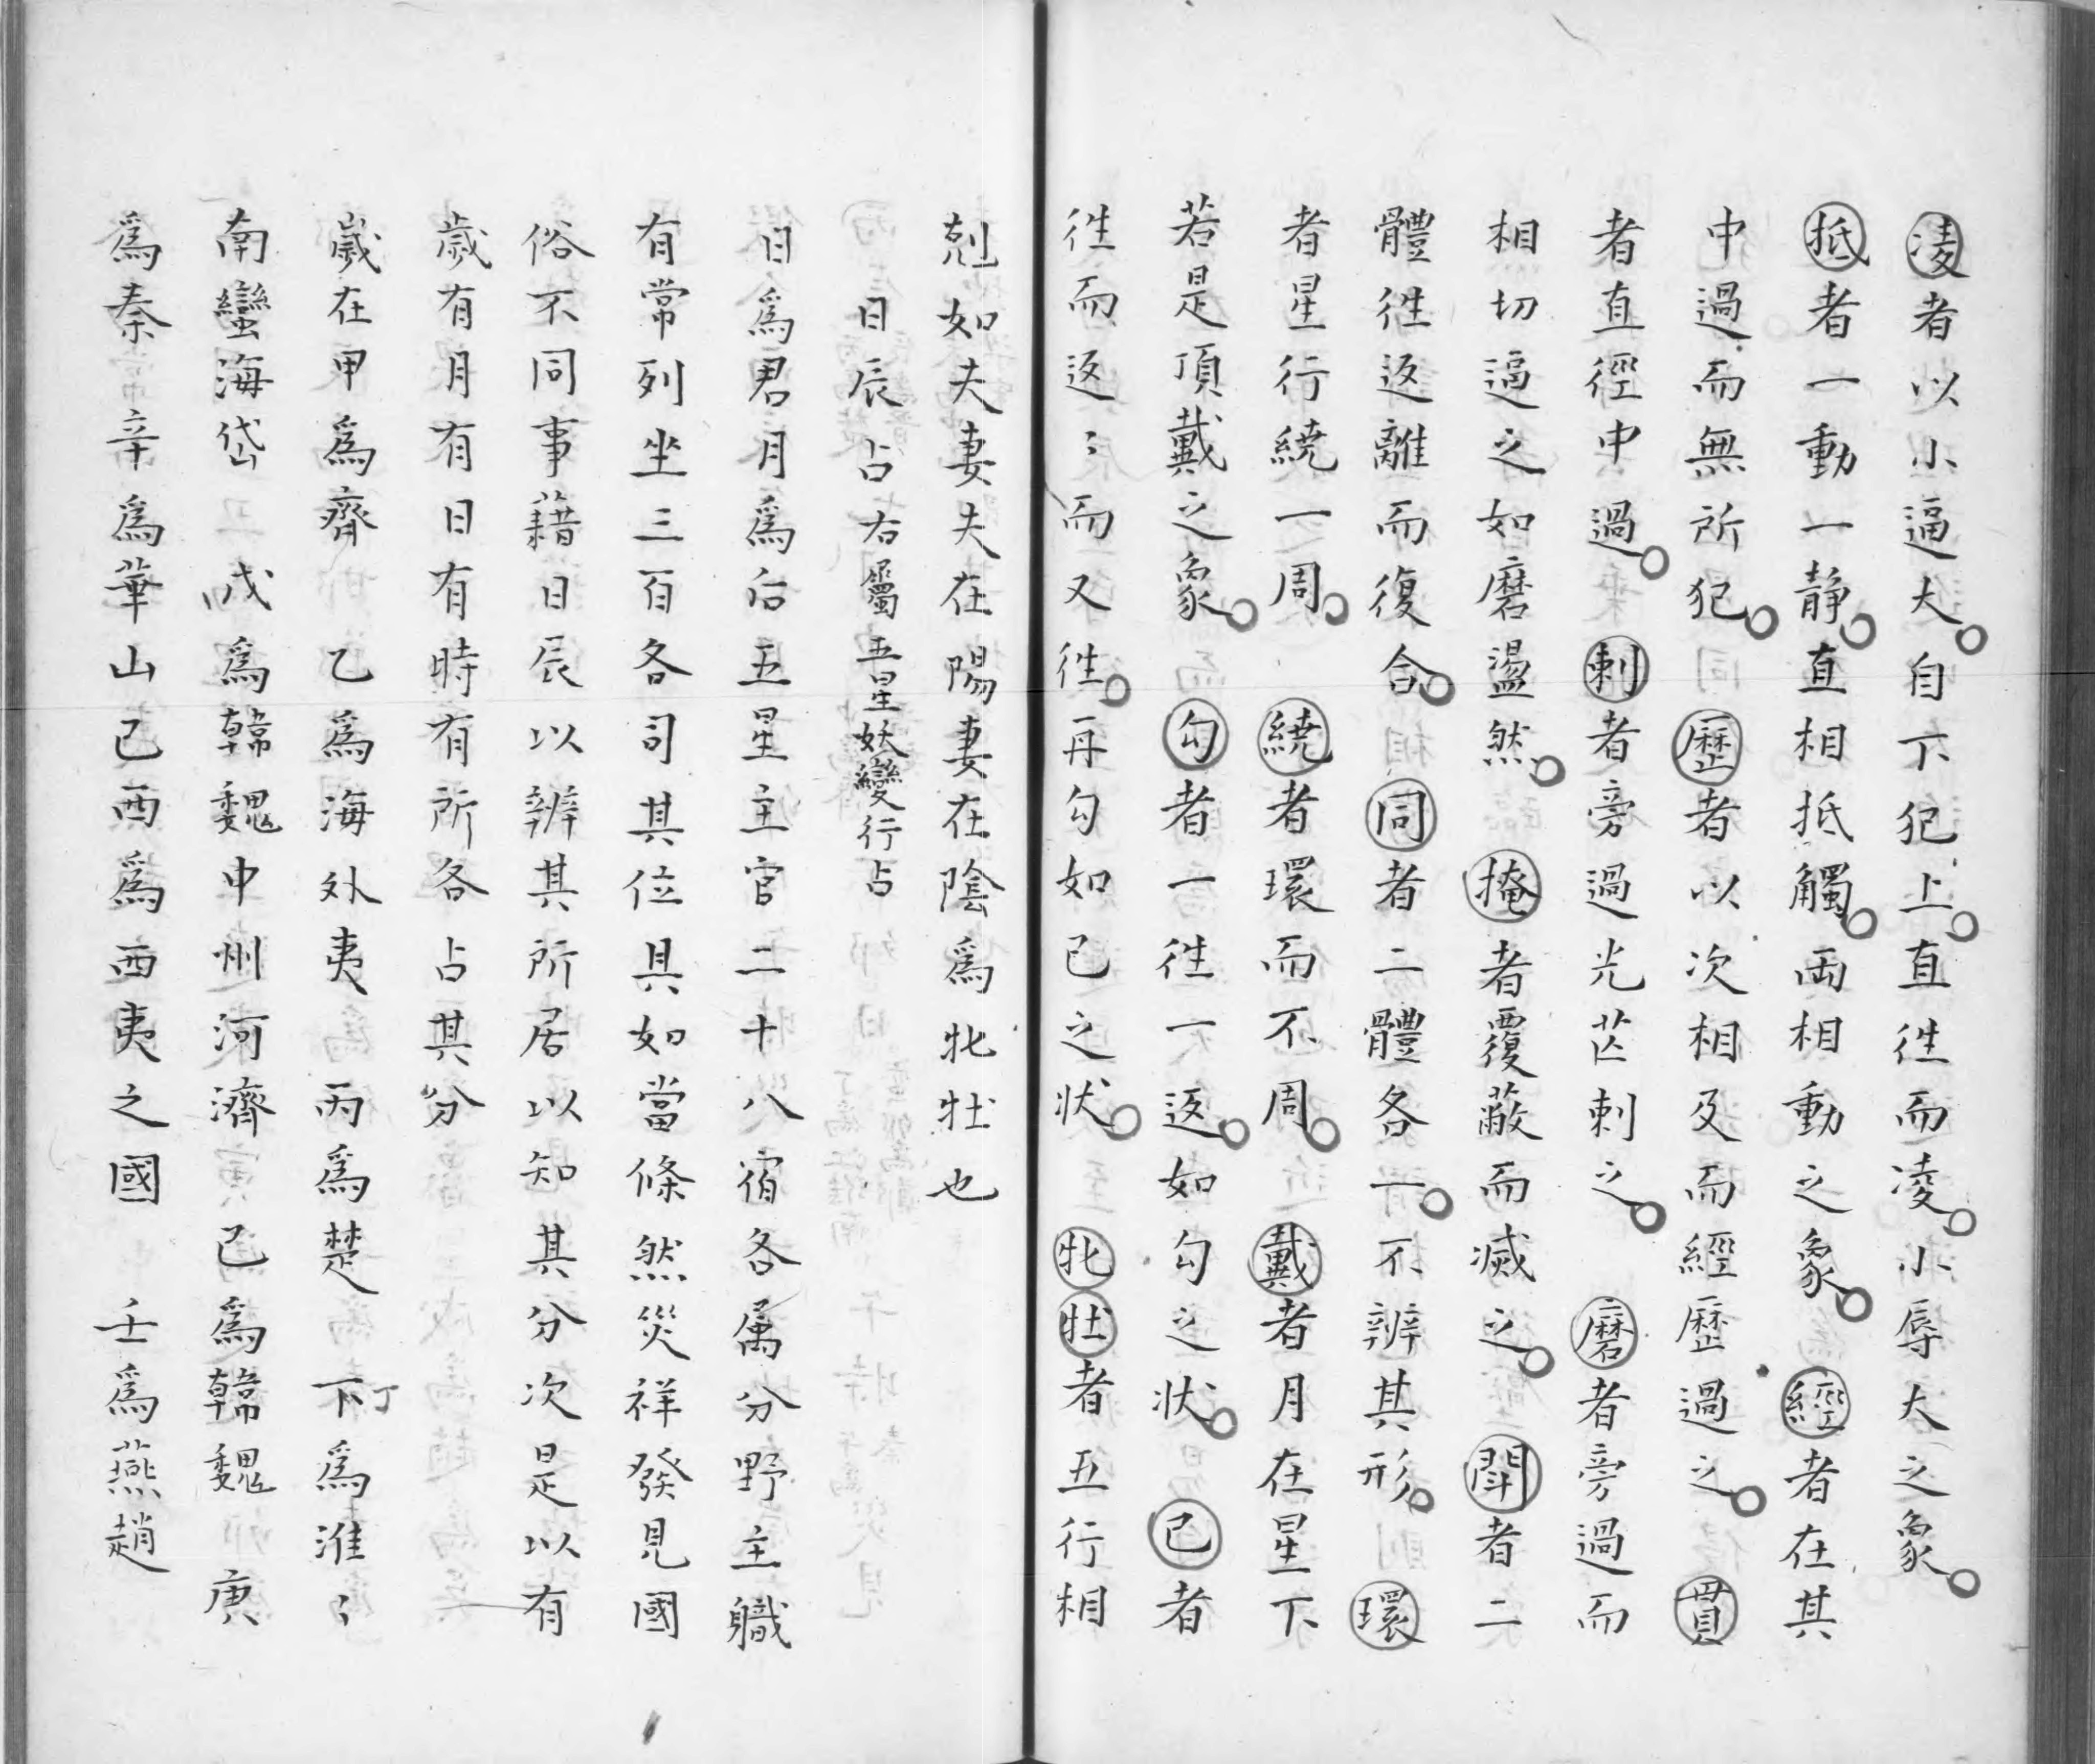 凌者以小逼大自下犯上直徃而凌小辱大之象
抵者一動一静直相抵觸両相動之象經者在其
中過而無所犯歷者以次相及而經歷過之貫
者直徑中過刺者旁過光芒刺之磨者旁過而
相切逼之如磨盪然掩者覆蔽而滅之鬪者二
體徃返離而復合同者二體各一不辨其形環
者星行繞一周繞者環而不周戴者月在星下
若是頂戴之象勾者一徃一返如勾之状已者
徃而返〻而又徃再勾如已之状牝牡者五行相
剋如夫妻夫在陽妻在陰爲牝牡也
日辰占右屬五星妖變行占
日爲君月爲后五星主官二十八宿各属分野主職
有常列坐三百各司其位具如當條然災祥發見國
俗不同事藉日辰以辨其所居以知其分次是以有
歲有月有日有時有所各占其分
歲在甲爲齊 乙爲海外夷 丙爲楚 丁下爲淮〻
南蠻海岱 戊爲韓魏中州河濟 己爲韓魏 庚
爲秦 辛爲華山已西爲西夷之國 壬爲燕趙